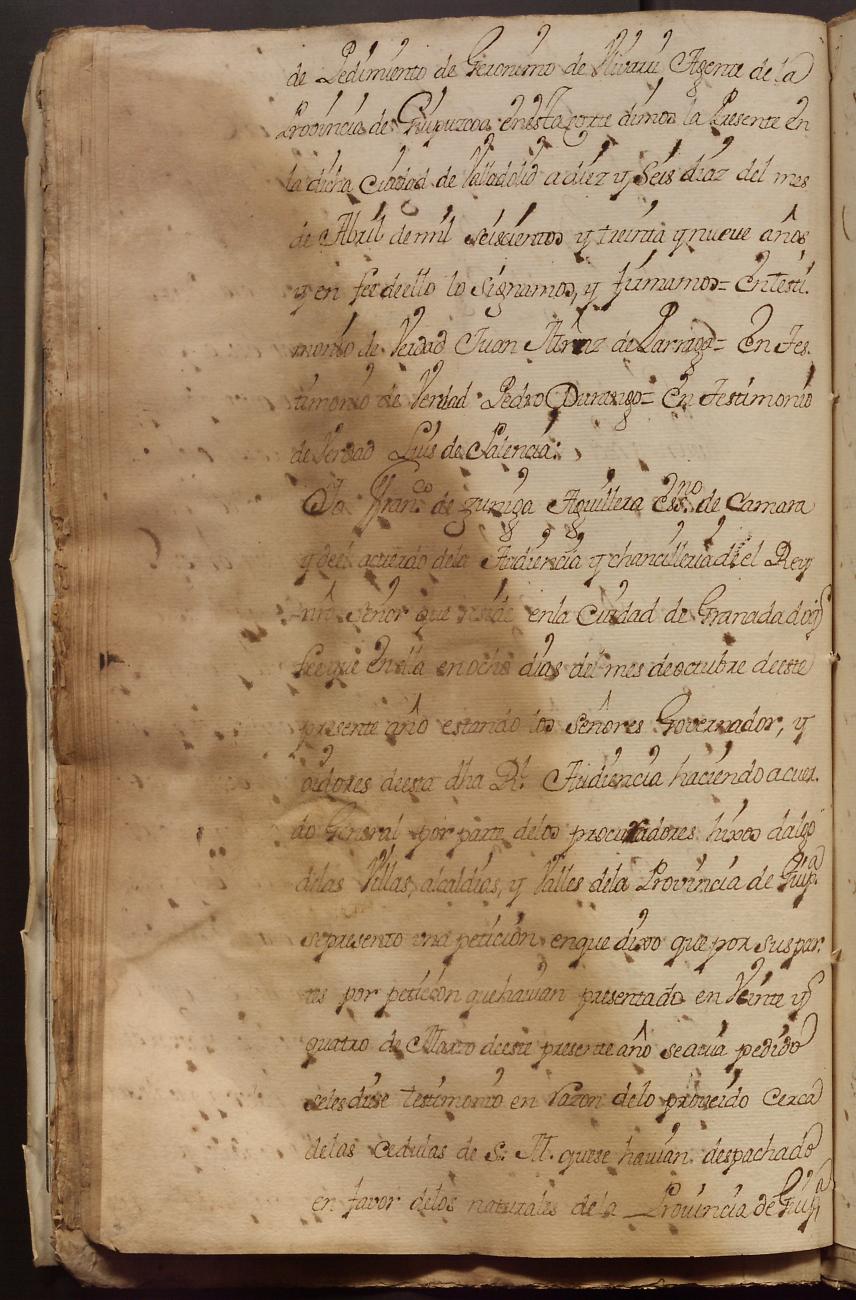 de Pedimiento de Geronimo de Agente de la
Provincia de Guipuzcoa en esta corte dimos la Presente en
la dicha ciudad de Valladolid a diez y seis diaz del mes
de Abril de mil seiscientos y treinta y nueve años
y en fee de ello lo signamos, y firmamos= En testi.
monio de Verdad Juan de Larraga= En Tes.
timonio de Verdad Pedro Durango= En Testimonio
de Verdad Luis de Palencia:
Yo Fran.co de zuñiga Aguillera Ess.no de Camara
y de el acuerdo de la Audiencia y chancilleria de el Rey
nr̃o Señor que reside en la Ciudad de Granada doy
fee que En ella en ocho dias del mes de octubre de este
presente año estando los Señores Governador, y
oidores de esta dha R.l Audiencia haciendo acuer.
do General por parte de los procuradores hixos dalgo
de las Villas, alcaldias, y Valles de la Provincia de Guip.a
se presento una peticion en que dixo que por sus par.
tes por peticion que havian presentado en Veinte y
quatro de Marzo de este presente año se avia pedido
se les diese testimonio en razon de lo proveido cerca
de las cedulas de S. M. que se havian despachado
en favor de los naturales de la Provincia de Guip.a